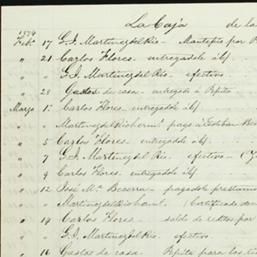 La Caja de la
1879
Feb.o 17 G. I. Martinez del Rio - Mantepio por P
" 21 Carlos Flores - entregadole a/f
" G. I. Martinez del Rio - efectivo
" 28 Gastos de casa - entregado a Pepito
Marzo 1.o Carlos Flores - entregadole a/f
" Martinez del Rio herm.s pago a Esteban
" 5 Carlos Flores - entregado a/f
" 7 G. I. Martinez del Rio - efectivo -
" 9 Carlos Flores - entregadole a/f
" 12 José M.a Becerra - pagadole prestamo
" Martinez del Rio herm.s Certificado de
" 14 Carlos Flores - saldo de reditos por
" G. I. Martinez del Rio - efectivo
" 16 Gastos de casa - Pepito para las